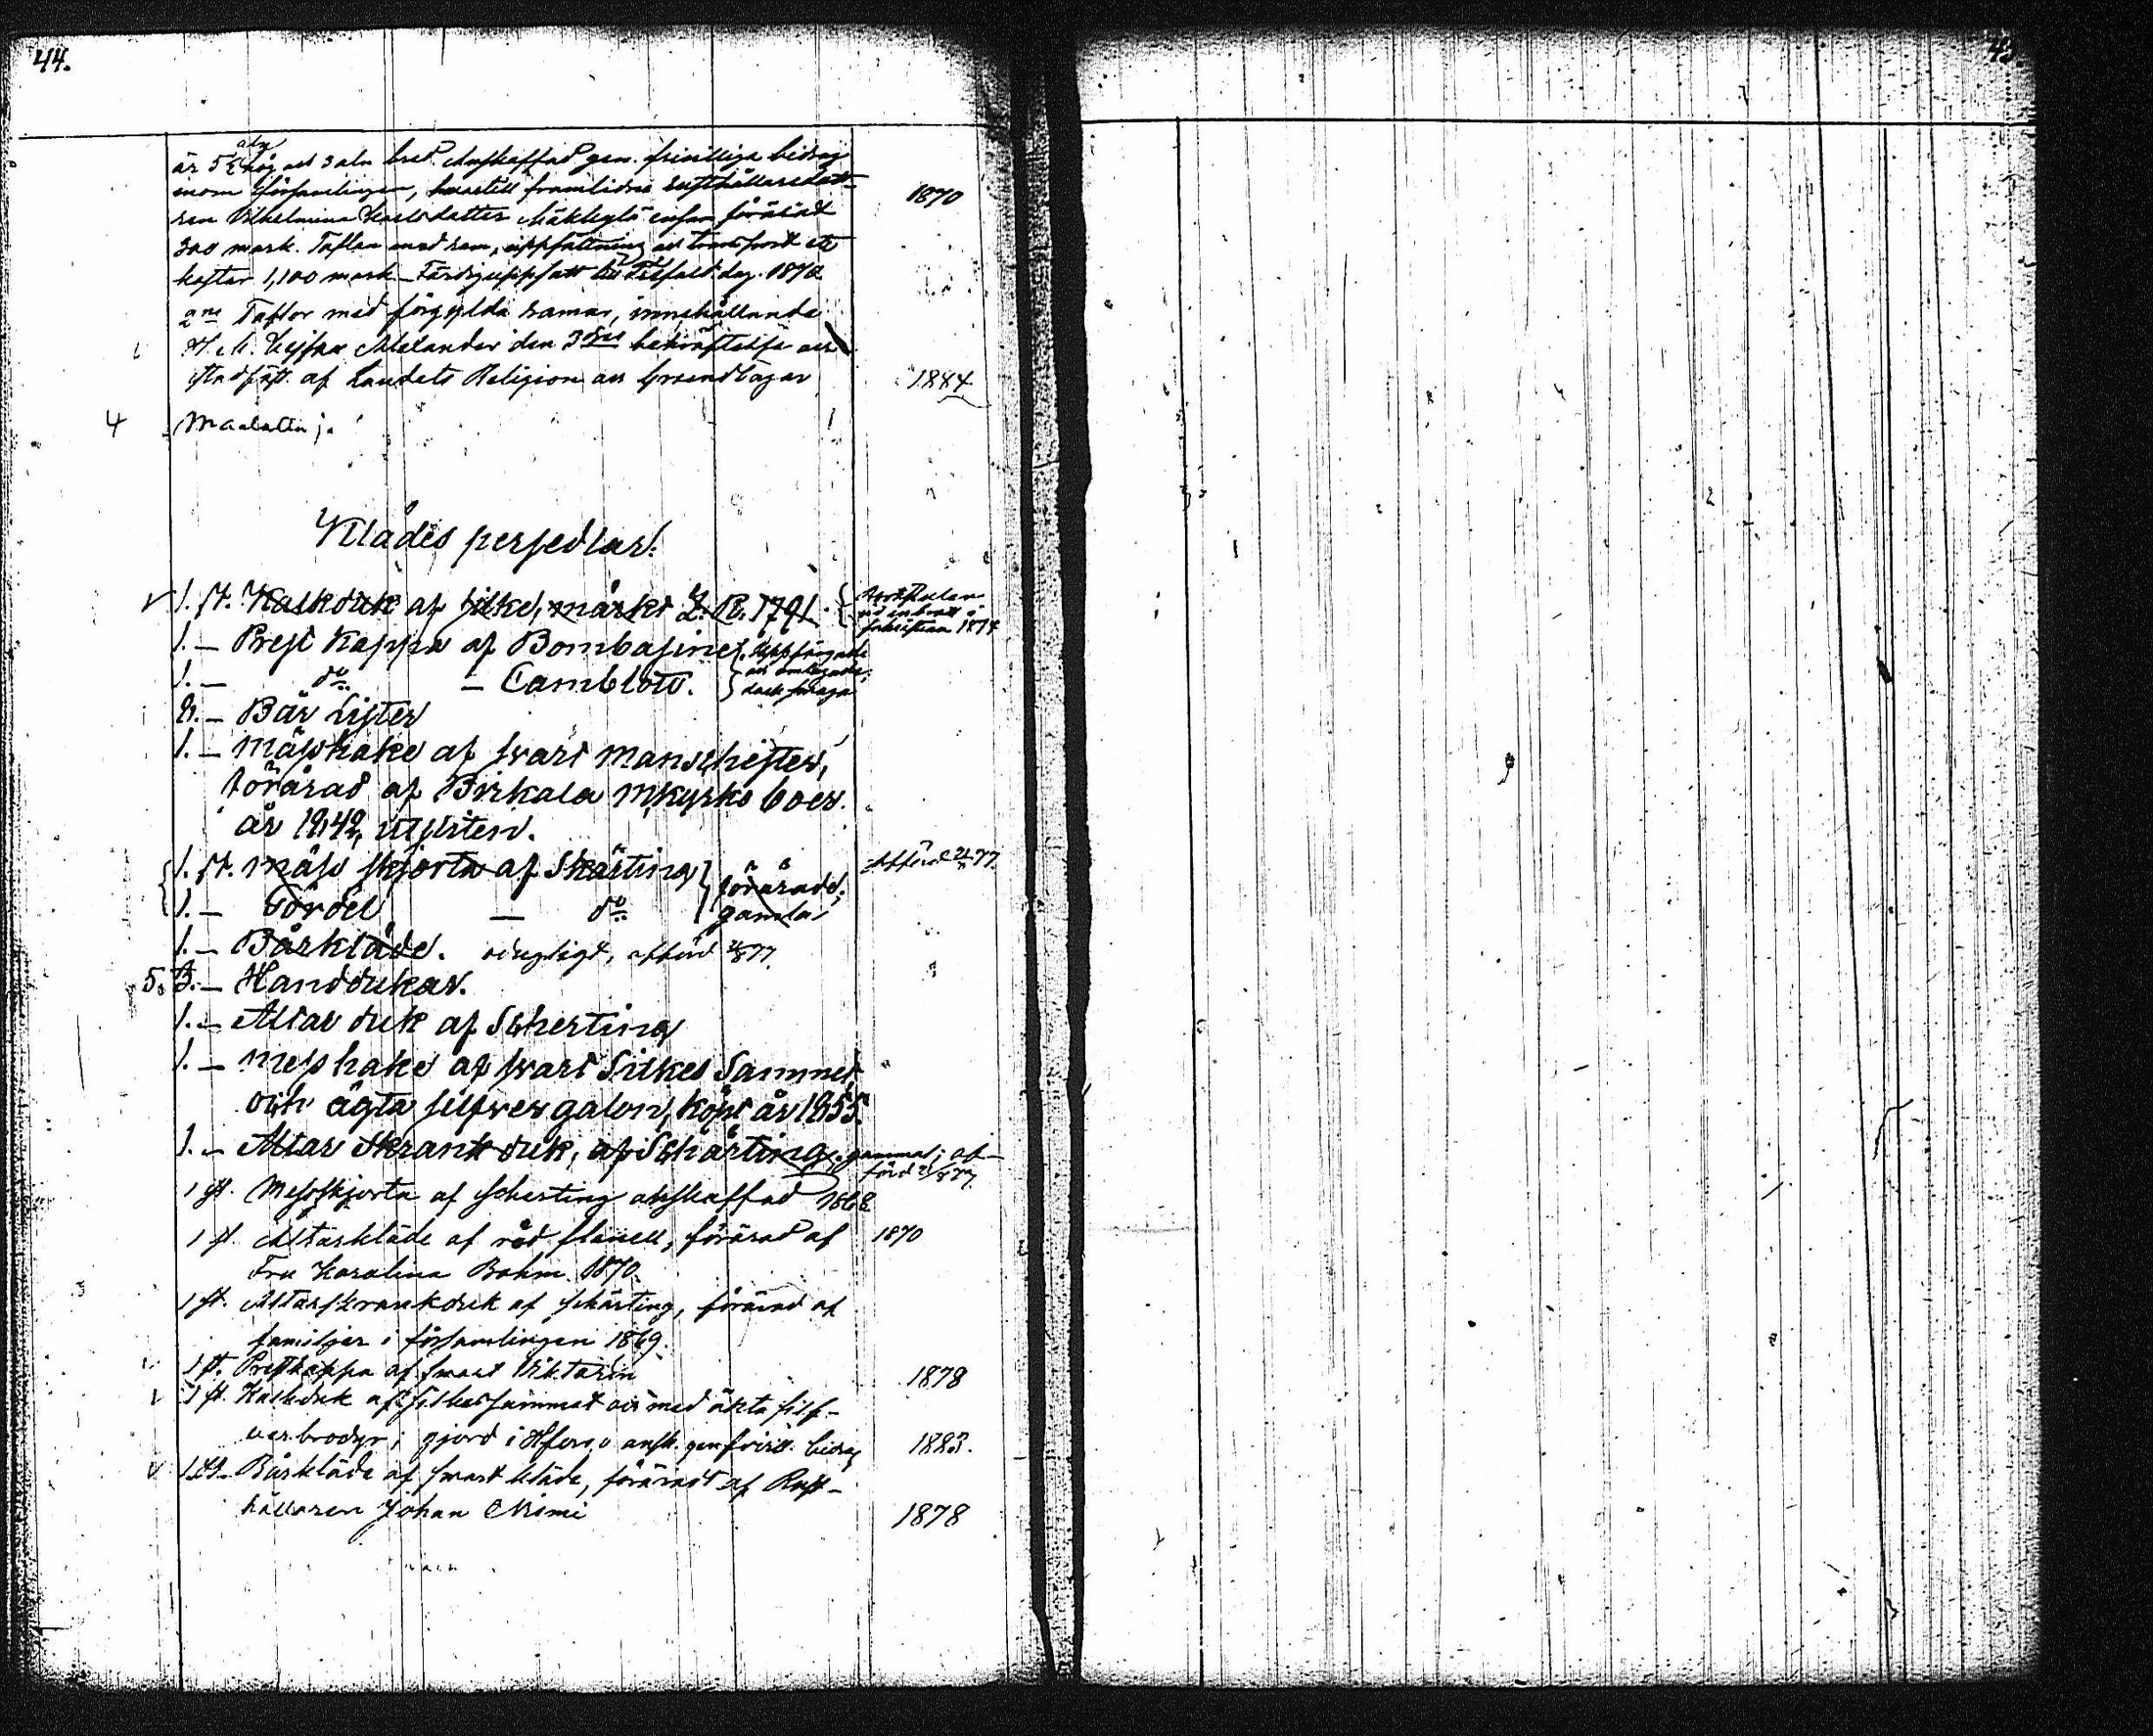 44.
är 5½ aln hög och 3 aln bred. Anskaffad gen. frivilliga bidrag
inom församlingen, hvartill framlidne rusthållaredott-
ren Vilhelmina Karlsdotter ensam förärat
300 mark. Taflan med ram, uppsättning och transport etc
kostar 1,100 mark. Färdig uppsatt 1870
1870
2ne Taflor med förgylda ramar, innehållande
H. M. Kejsar Alexander den 3djes bekräftelse och
stadfäst. af Landets Religion och Grundlagar
1884
4
Klädes persedlar.
1. st. Kalkduk af silke, märkt 1791.
{ Bortstulen
vid inbrott i
sakristian 1874
1. — Prest Kappa af Bombasine
{ Uppfärgade
och omlagade,
dock svaga
1. — do — Camblott.
2. — Bår Lister
1. — Mässhake af svart Manschester,
förärad af Birkala M,kyrko boer.
år 1842, utsliten.
1. st. Mäss skjorta af Skärting
1. — Gördel — do
förärade;
gamla
Afförd 77.
1. — Bårkläde. odugligt, afförd 77.
5. 3. — Handdukar.
1. — Altar duk af Scherting
1. — Messhake af svart Silkes Sammet
och ägta silfver galon, köpt år 1855.
1. — Altar Skrank duk, af Schärting. gammal; af-
förd 77.
1 st. Messskjorta af scherting anskaffad 1868
1 st. Altarkläde af röd flanell, förärad af
1870
Fru Karolina Bohm. 1870.
1 st. Altarskrankduk af schärting, förärad af
familjer i församlingen 1869.
1 st. Prestkappa af svart Viktoria
1878
1 st. Kalkduk af silkessammet och med äkta silf-
verbrodyr; gjord i Hfors o. ansk. gen frivill. bidrag
1883.
1 st. Bårkläde af svart kläde, föräradt af Rust-
hållaren Johan
1878